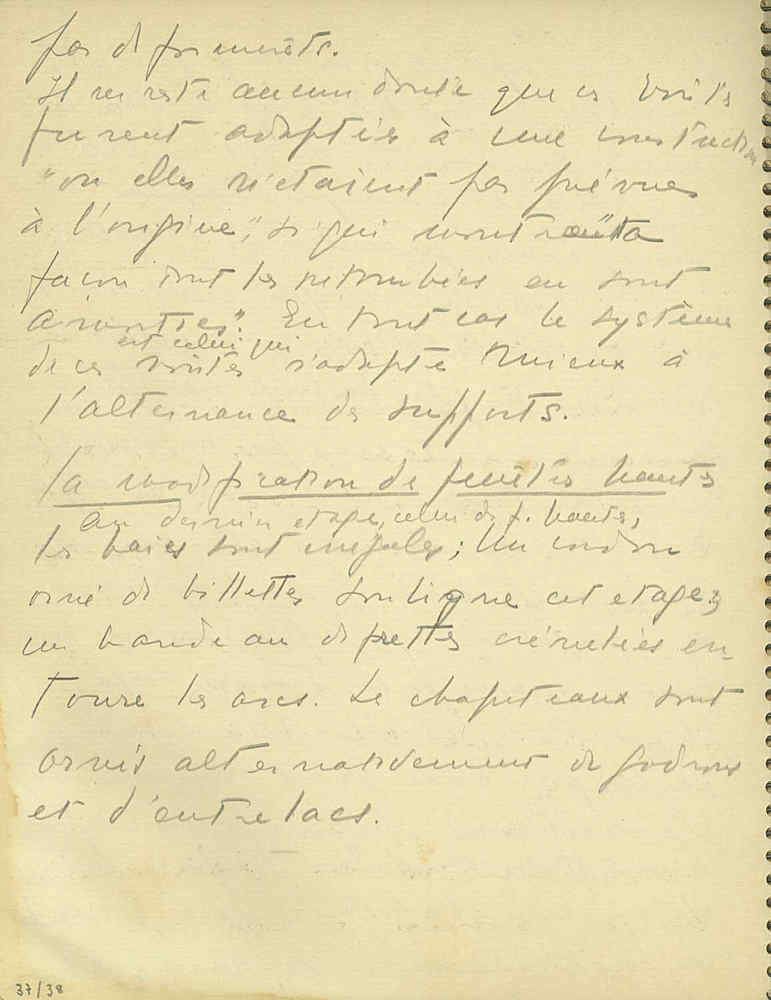 pas de formerets.
Il ne reste aucun doute que ces voûtes
furent adaptées à une construction
"ou elles n'etaient pas prévues
à l'origine", ce qui montre la
façon dont les retombées en sont
En tout cas le système
est celui qui
de ces voûtes s'adapte mieux à
l'alternance des supports.
la modification de fenêtres hautes
au dernier etage, celui des f. hautes,
les baies sont inégales; Un cordon
orné de billettes souligne cet etage;
un bandeau de frettes crénelées en-
toure les arcs. Le chapiteaux sont
ornés alternativement de godrons
et d'entrelacs.
37/38